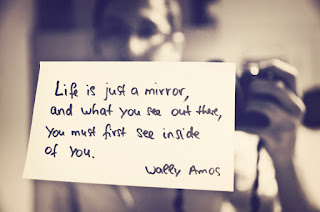 Life is just a mirror,
and what you see out there,
you must first see inside
of you.
Wally Amos